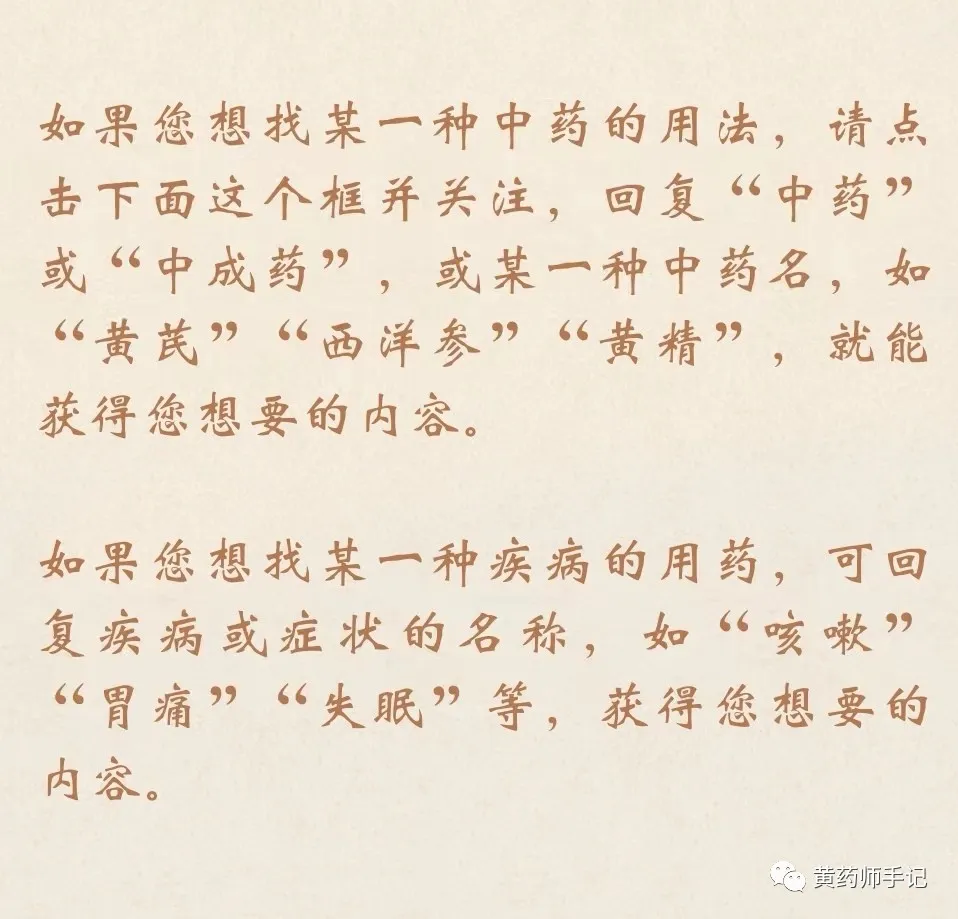 如果您想找某一种中药的用法，请点
击下面这个框并关注，回复“中药”
或“中成药”，或某一种中药名，如
“黄芪”“西洋参”“黄精”，就能
获得您想要的内容。
如果您想找某一种疾病的用药，可回
复疾病或症状的名称，如“咳嗽”
“胃痛”“失眠”等，获得您想要的
内容。
黄药师手记